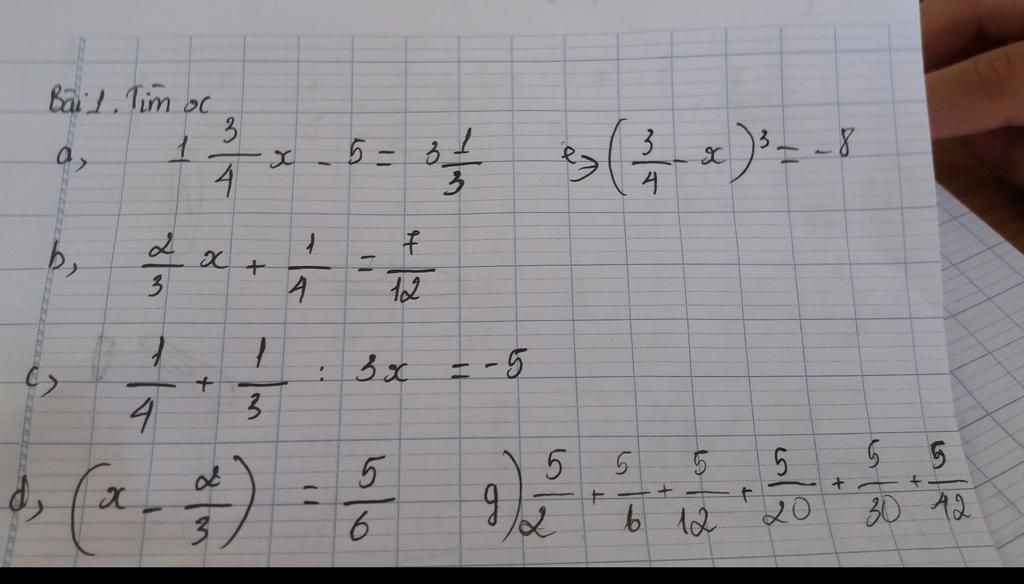 Bài 1. Tìm x
a, 1 3/4 x - 5 = 3 1/3
e, (3/4 - x)³ = -8
b, 2/3 x + 1/4 = 7/12
c, 1/4 + 1/3 : 3x = -5
d, (x - 2/3) = 5/6
g) 5/2 + 5/6 + 5/12 + 5/20 + 5/30 + 5/42